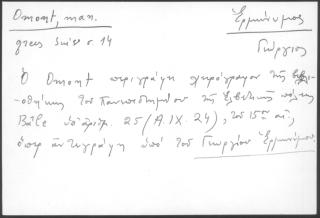 Omont, man.
Ἑρμώνυμος
grecs Suisse σ. 14
Γεώργιος
Ὁ Omont περιγράφη χειρόγραφον τῆς βιβλι-
-οθήκης τοῦ Πανεπιστημίου τῆς Ἑλβετικῆς πόλεως
Bâle ὑπ' ἀριθμ. 25 (A. IX. 24), τοῦ 15ου αἰ.,
ὅπερ ἀντεγράφη ὑπὸ τοῦ Γεωργίου Ἑρμωνύμου.